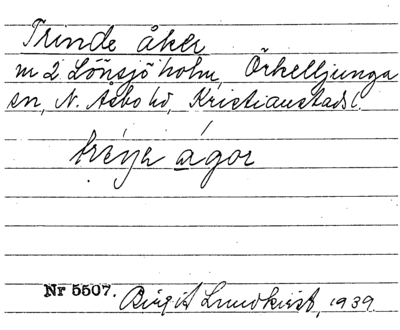 Trinde åker
m 2 Lönsjöholm, Örkelljunga
sn, N. Åsbo hd, Kristianstads l.
ágor
Nr 5507. Birgit Lundkvist, 1939.